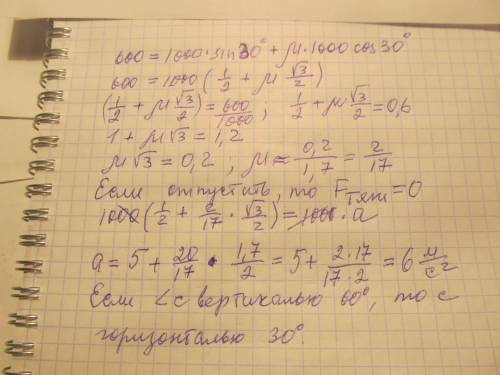 600 = 1000·sin30° + μ·1000cos30°
600 = 1000(1/2 + μ √3/2)
(1/2 + μ √3/2) = 600/1000; 1/2 + μ √3/2 = 0,6
1 + μ√3 = 1,2
μ√3 = 0,2; μ = 0,2/1,7 = 2/17
Если отпустить, то Fтяж = 0
1000(1/2 + 2/17 · √3/2) = 1000·a
a = 5 + 20/17 · 1,7/2 = 5 + 2·17/17·2 = 6 м/с²
Если ∠ с вертикалью 60°, то с
горизонталью 30°.